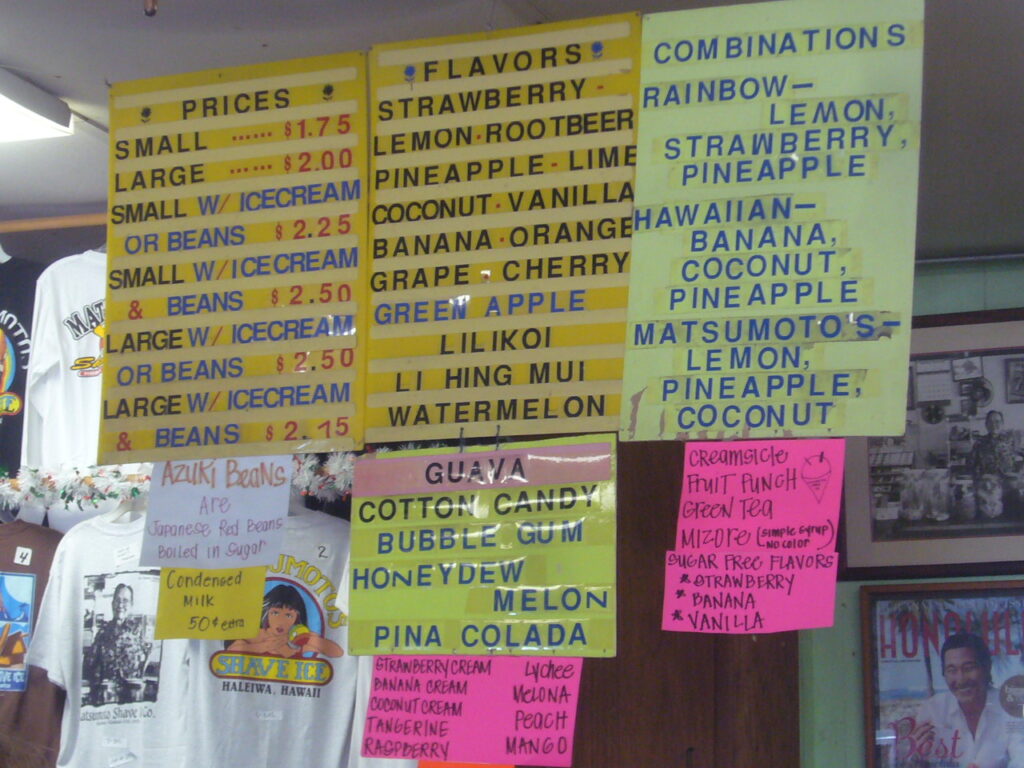 PRICES
SMALL ...... $1.75
LARGE ...... $2.00
SMALL W/ ICECREAM
OR BEANS $2.25
SMALL W/ICECREAM
& BEANS $2.50
LARGE W/ ICECREAM
OR BEANS $2.50
LARGE W/ ICECREAM
& BEANS $2.75
FLAVORS
STRAWBERRY -
LEMON-ROOTBEER
PINEAPPLE-LIME
COCONUT-VANILLA
BANANA-ORANGE
GRAPE-CHERRY
GREEN APPLE
LILIKOI
LI HING MUI
WATERMELON
COMBINATIONS
RAINBOW-
LEMON,
STRAWBERRY,
PINEAPPLE
HAWAIIAN-
BANANA,
COCONUT,
PINEAPPLE
MATSUMOTO'S-
LEMON,
PINEAPPLE,
COCONUT
AZUKI BeANS
Are
Japanese Red Beans
Boiled in sugar
Condensed
MILK
50¢ extra
GUAVA
COTTON CANDY
BUBBLE GUM
HONEYDEW
MELON
PINA COLADA
STRAWBERRY CREAM
BANANA CREAM
COCONUT CREAM
TANGERINE
RASPBERRY
Lychee
MeLONA
PEACH
MANGO
CREAMSICLE
FRUIT PUNCH
GREEN TEA
MIZORE (simple syrup/
NO COLOR)
SUGAR FREE FLAVORS
* STRAWBERRY
* BANANA
* VANILLA
MAT
4
2
SHAVE ICE
HALEIWA, HAWAII
atsumoto Shave Ice Co.
HONOLUL
Best